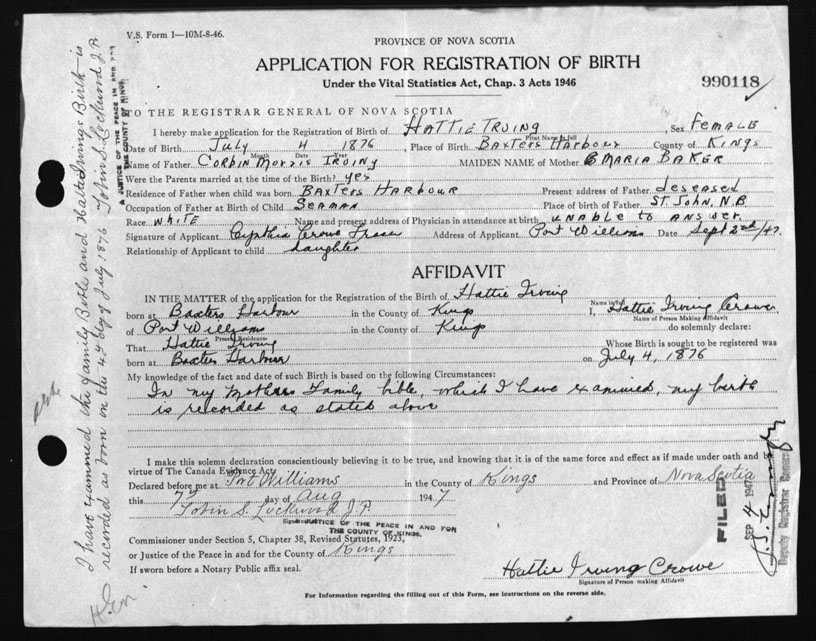 V.S. Form 1—10M-8-46.
PROVINCE OF NOVA SCOTIA
APPLICATION FOR REGISTRATION OF BIRTH
Under the Vital Statistics Act, Chap. 3 Acts 1946
990118
TO THE REGISTRAR GENERAL OF NOVA SCOTIA
I hereby make application for the Registration of Birth of HATTIE IRVING Sex FEMALE
Print Name in full
Date of Birth July 4 1876, Place of Birth Baxters Harbour County of Kings
Month Date Year
Name of Father CORBIN Morris Irving MAIDEN NAME of Mother MARIA BAKER
Were the Parents married at the time of the Birth? yes
Residence of Father when child was born BAXTERS HARBOUR Present address of Father deseased
Occupation of Father at Birth of Child SEAMAN Place of birth of Father ST. JOHN, N.B
Race WHITE Name and present address of Physician in attendance at birth UNABLE to ANSWER
Signature of Applicant Cynthia Crowe Fraser Address of Applicant Port Williams Date Sept 2nd/47.
Relationship of Applicant to child daughter
AFFIDAVIT
IN THE MATTER of the application for the Registration of the Birth of Hattie Irving
born at Baxters Harbour in the County of Kings I, Hattie Irving Crowe
Name in full
Name of Person Making Affidavit
of Port Williams in the County of Kings do solemnly declare:
Present Residence
That Hattie Irving Whose Birth is sought to be registered was
born at Baxters Harbour on July 4, 1876
My knowledge of the fact and date of such Birth is based on the following Circumstances:
In my Mothers Family bible, which I have examined, my birth
is recorded as stated above
I make this solemn declaration conscientiously believing it to be true, and knowing that it is of the same force and effect as if made under oath and
virtue of The Canada Evidence Act.
Declared before me at Port Williams in the County of Kings and Province of Nova Scotia
this 7th day of Aug 1947
Tobin S. Lockwood J.P.
JUSTICE OF THE PEACE IN AND FOR
THE COUNTY OF KINGS.
Commissioner under Section 5, Chapter 38, Revised Statutes, 1923,
or Justice of the Peace in and for the County of Kings
If sworn before a Notary Public affix seal.
Hattie Irving Crowe
Signature of Person making Affidavit
For Information regarding the filling out of this Form, see instructions on the reverse side.
I have examined the family Bible and Hattie Irvings Birth is
recorded as born on the 4th day of July 1876 Tobin S. Lockwood J.P.
A JUSTICE OF THE PEACE IN AND FOR
THE COUNTY OF KINGS.
FILED
SEP 4 1947
Deputy Registrar General